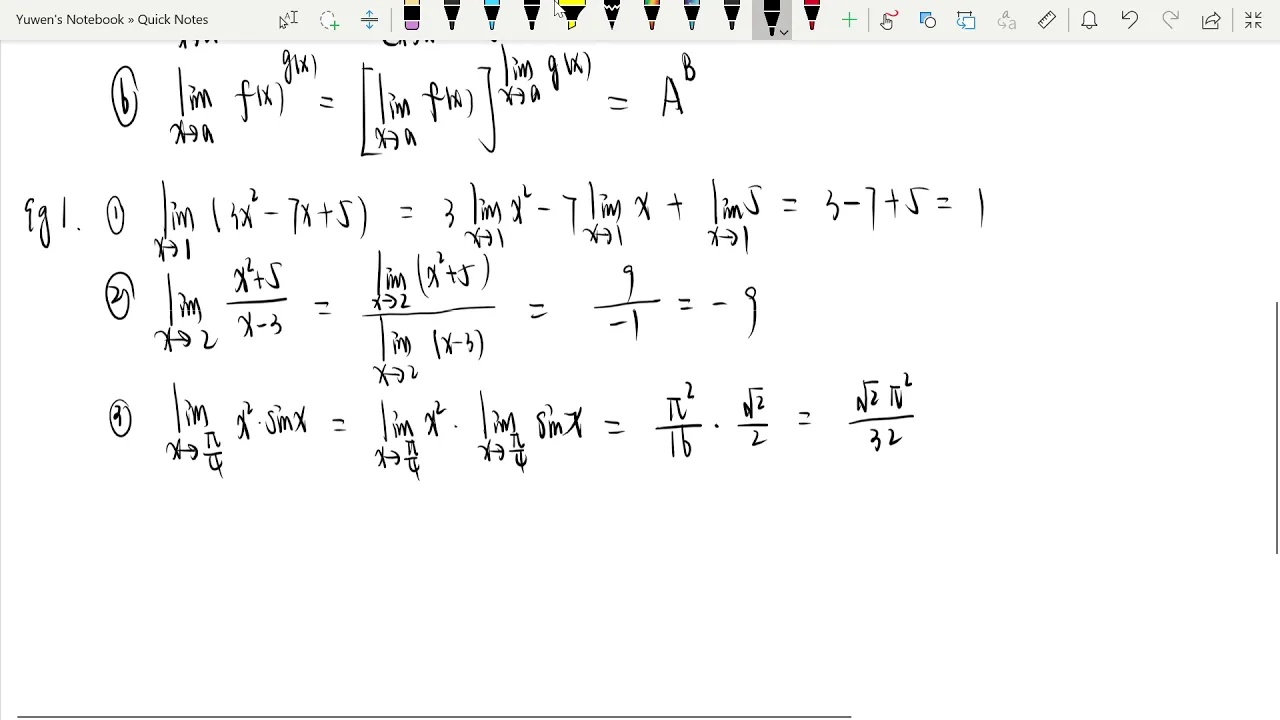 Yuwen's Notebook » Quick Notes
⑥ lim x→a f(x)^g(x) = [lim x→a f(x)]^lim x→a g(x) = A^B
Eg 1. ① lim x→1 (3x² - 7x + 5) = 3 lim x→1 x² - 7 lim x→1 x + lim x→1 5 = 3 - 7 + 5 = 1
② lim x→2 (x²+5)/(x-3) = lim x→2 (x²+5) / lim x→2 (x-3) = 9/-1 = -9
③ lim x→π/4 x² · sinx = lim x→π/4 x² · lim x→π/4 sinx = π²/16 · √2/2 = √2 π²/32